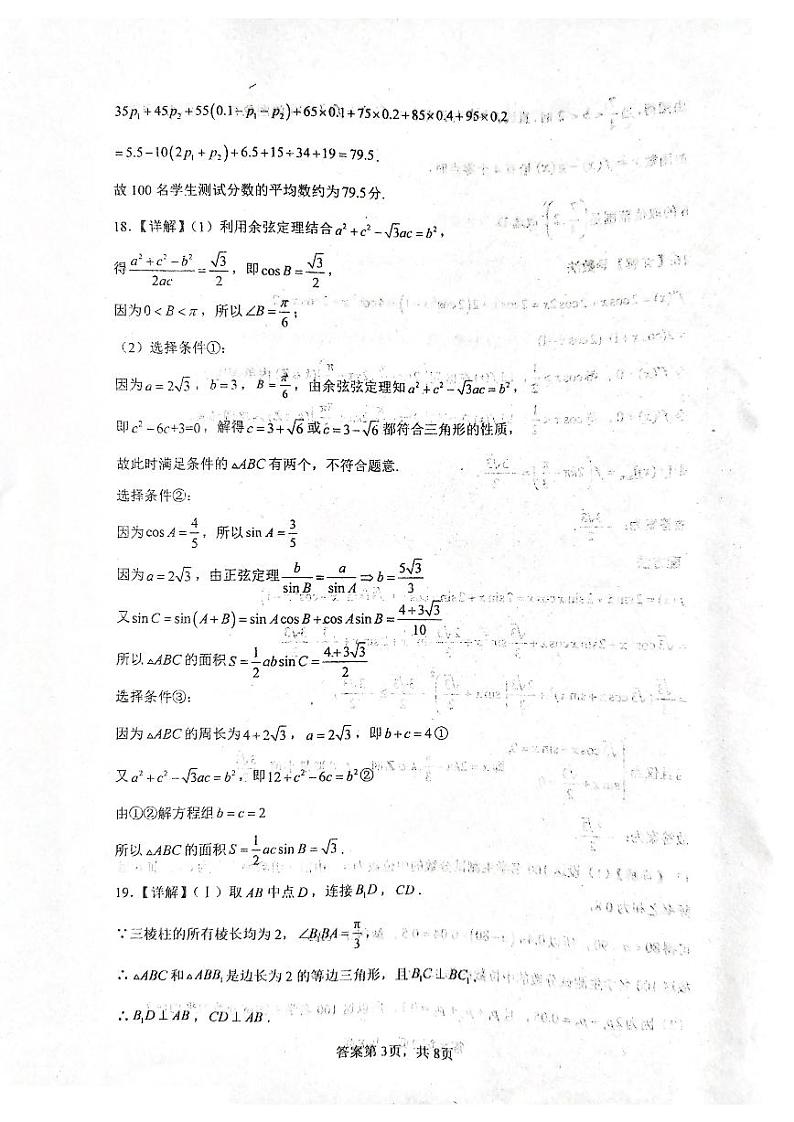 35p₁+45p₂+55(0.1-p₁-p₂)+65×0.1+75×0.2+85×0.4+95×0.2
=5.5-10(2p₁+p₂)+6.5+15+34+19=79.5.
故100名学生测试分数的平均数约为79.5分.
18.【详解】(1)利用余弦定理结合a²+c²-√3ac=b²,
得(a²+c²-b²)/2ac=√3/2,即cosB=√3/2,
因为0<B<π,所以∠B=π/6;
(2)选择条件①:
因为a=2√3,b=3,B=π/6,由余弦弦定理知a²+c²-√3ac=b²,
即c²-6c+3=0,解得c=3+√6或c=3-√6都符合三角形的性质,
故此时满足条件的△ABC有两个,不符合题意.
选择条件②:
因为cosA=4/5,所以sinA=3/5
因为a=2√3,由正弦定理b/sinB=a/sinA⇒b=5√3/3
又sinC=sin(A+B)=sinAcosB+cosAsinB=(4+3√3)/10
所以△ABC的面积S=1/2absinC=(4+3√3)/2
选择条件③:
因为△ABC的周长为4+2√3,a=2√3,即b+c=4①
又a²+c²-√3ac=b²,即12+c²-6c=b²②
由①②解方程组b=c=2
所以△ABC的面积S=1/2acsinB=√3.
19.【详解】(Ⅰ)取AB中点D,连接B₁D,CD.
∵三棱柱的所有棱长均为2,∠B₁BA=π/3,
∴△ABC和△ABB₁是边长为2的等边三角形,且B₁C⊥BC₁.
∴B₁D⊥AB,CD⊥AB.
答案第3页,共8页